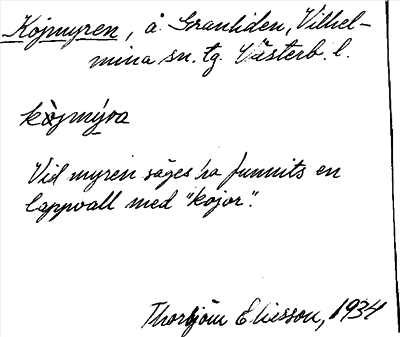 Kojmyren, å Granliden, Vilhel-
mina sn. tg. Västerb. l.
kòjmýra
Vid myren säges ha funnits en
lappvall med "kojor".
Thorbjörn Eliesson, 1934